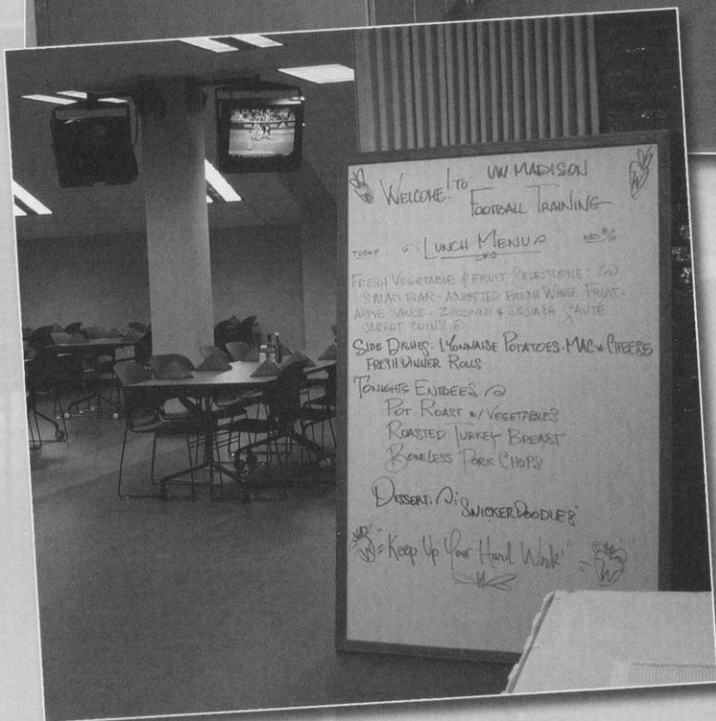 WELCOME! TO UW MADISON
FOOTBALL TRAINING
LUNCH MENU
FRESH VEGETABLE & FRUIT SELECTIONS:
SALAD BAR - ASSORTED FRESH WHOLE FRUIT -
APPLE SAUCE - ZUCCHINI & SQUASH SAUTE
CARROT COINS
SIDE DISHES: LYONNAISE POTATOES - MAC & CHEESE
FRESH DINNER ROLLS
TONIGHTS ENTREES
POT ROAST W/ VEGETABLES
ROASTED TURKEY BREAST
BONELESS PORK CHOPS
DESSERT: SNICKERDOODLES
"Keep Up Your Hard Work"